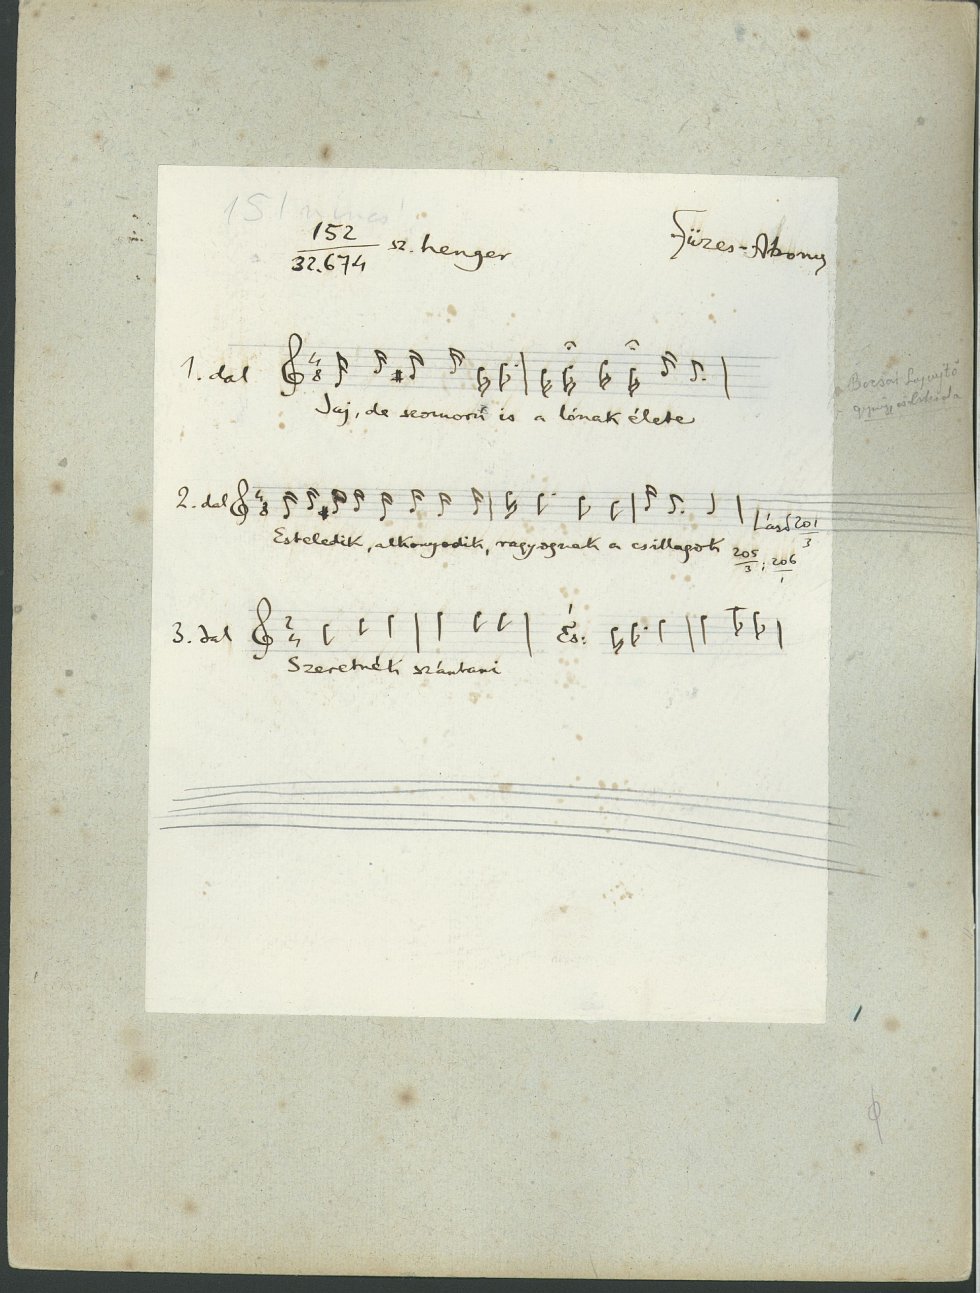 151 nincs!
152
32.674 sz. henger
Füzes-Abony
1. dal
Jaj, de szomorú is a lónak élete
2. dal
Esteledik, alkonyodik, ragyognak a csillagok
Lásd 201
3
205
3 ; 206
1
3. dal
És:
Szeretnék szántani